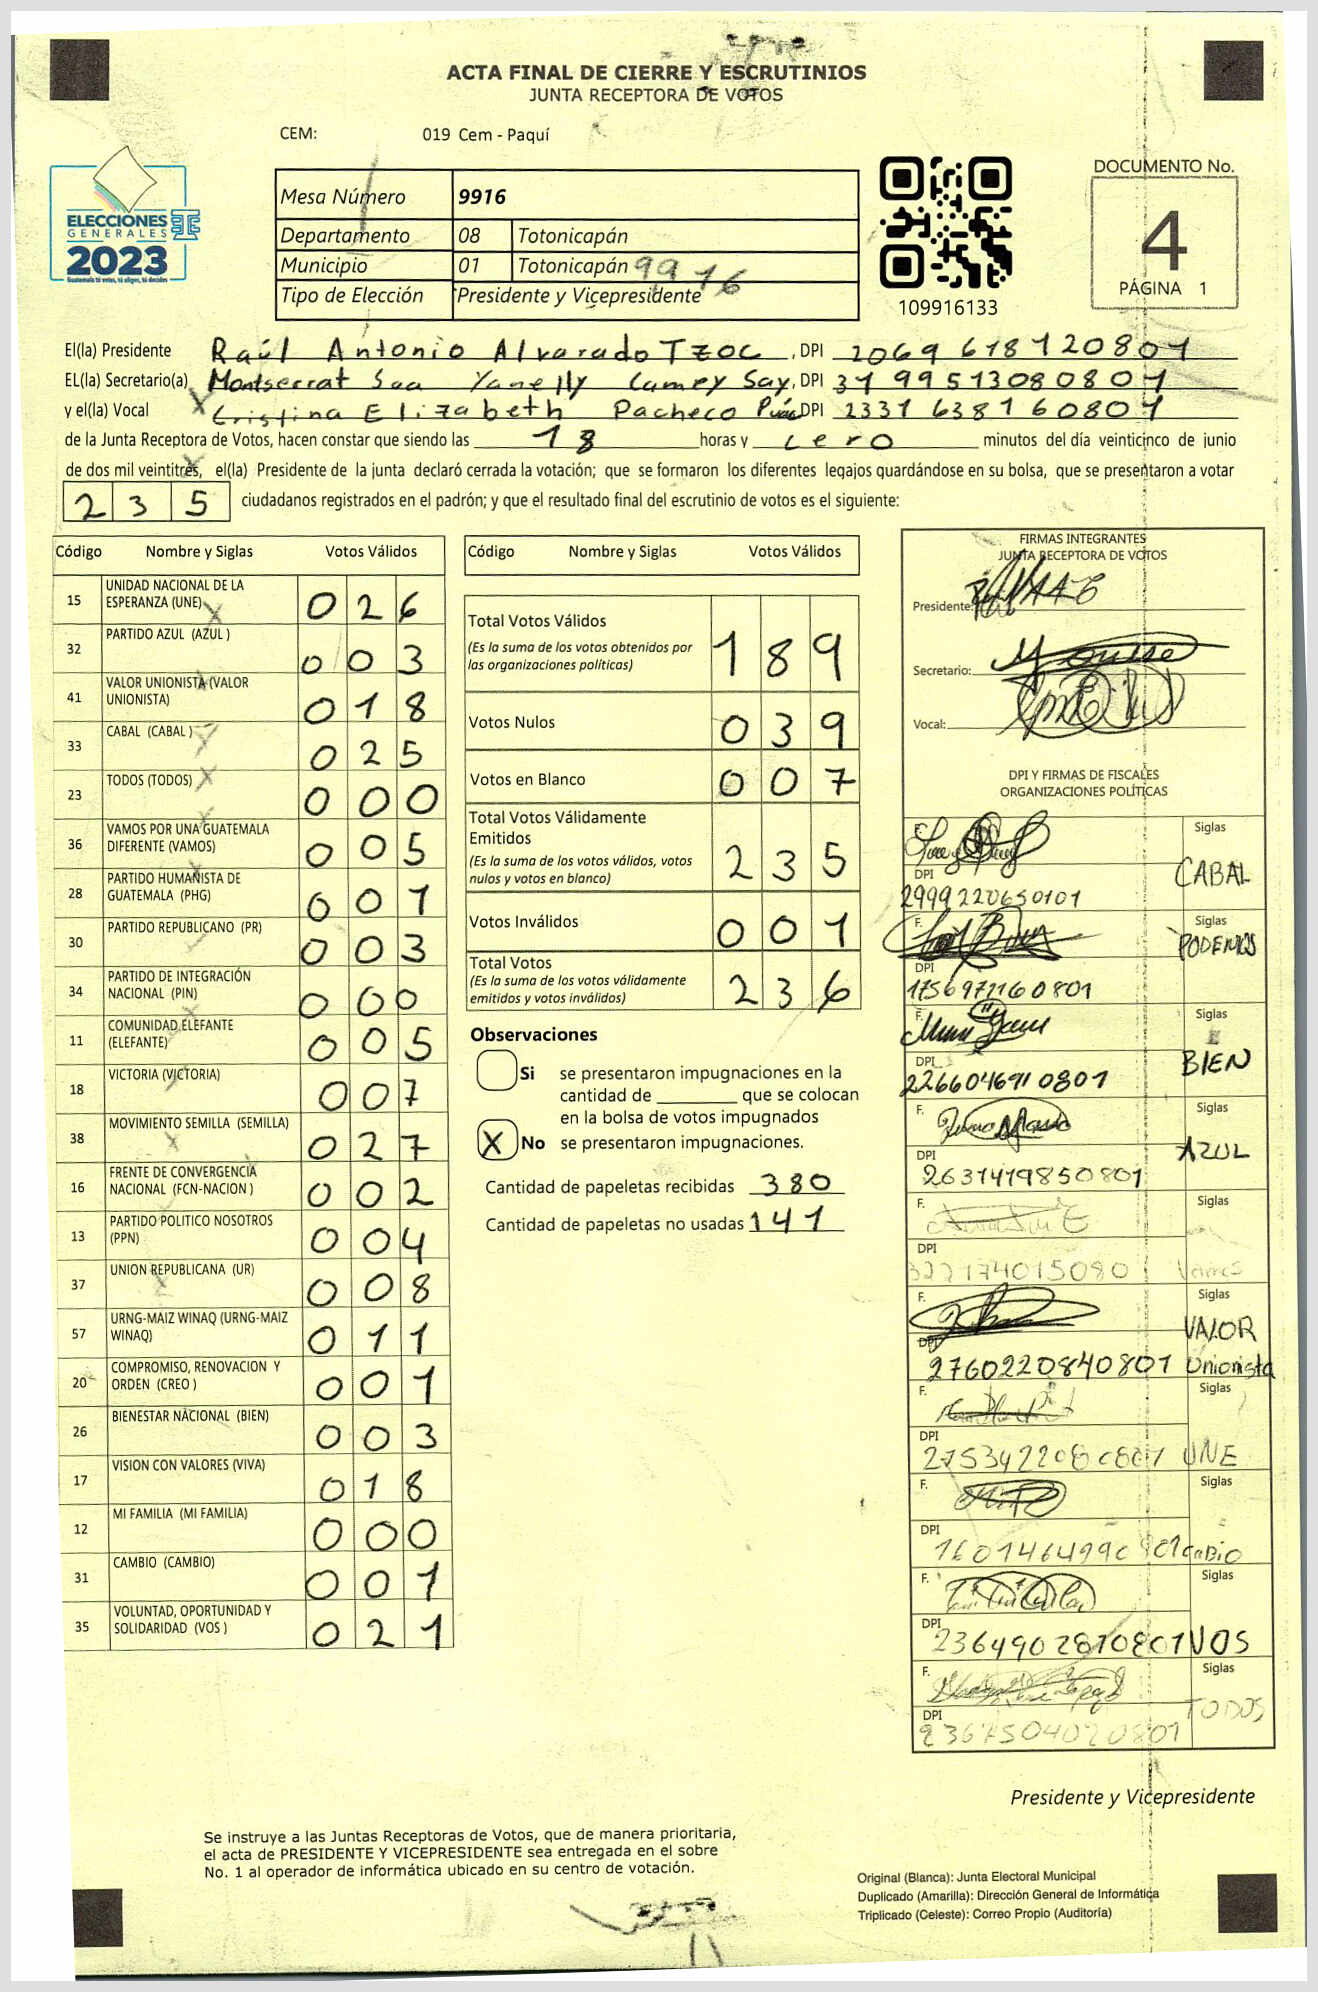 ACTA FINAL DE CIERRE Y ESCRUTINIOS
JUNTA RECEPTORA DE VOTOS
CEM: 019 Cem - Paquí
ELECCIONES
GENERALES
2023
Guatemala tú votas, tú eliges, tú decides
Mesa Número 9916
Departamento 08 Totonicapán
Municipio 01 Totonicapán 9916
Tipo de Elección Presidente y Vicepresidente
109916133
DOCUMENTO No.
4
PÁGINA 1
El(la) Presidente Raúl Antonio Alvarado Tzoc , DPI 2069 61812 0801
EL(la) Secretario(a) Montserrat Yanelly Camey Say, DPI 3199513080801
y el(la) Vocal Cristina Elizabeth Pacheco DPI 2331 63816 0801
de la Junta Receptora de Votos, hacen constar que siendo las 18 horas y cero minutos del día veinticinco de junio
de dos mil veintitrés, el(la) Presidente de la junta declaró cerrada la votación; que se formaron los diferentes legajos quardándose en su bolsa, que se presentaron a votar
235 ciudadanos registrados en el padrón; y que el resultado final del escrutinio de votos es el siguiente:
Código Nombre y Siglas Votos Válidos
15 UNIDAD NACIONAL DE LA ESPERANZA (UNE) 026
32 PARTIDO AZUL (AZUL ) 003
41 VALOR UNIONISTA (VALOR UNIONISTA) 018
33 CABAL (CABAL ) 025
23 TODOS (TODOS) 000
36 VAMOS POR UNA GUATEMALA DIFERENTE (VAMOS) 005
28 PARTIDO HUMANISTA DE GUATEMALA (PHG) 001
30 PARTIDO REPUBLICANO (PR) 003
34 PARTIDO DE INTEGRACIÓN NACIONAL (PIN) 000
11 COMUNIDAD ELEFANTE (ELEFANTE) 005
18 VICTORIA (VICTORIA) 007
38 MOVIMIENTO SEMILLA (SEMILLA) 027
16 FRENTE DE CONVERGENCIA NACIONAL (FCN-NACION ) 002
13 PARTIDO POLITICO NOSOTROS (PPN) 004
37 UNION REPUBLICANA (UR) 008
57 URNG-MAIZ WINAQ (URNG-MAIZ WINAQ) 011
20 COMPROMISO, RENOVACION Y ORDEN (CREO ) 001
26 BIENESTAR NACIONAL (BIEN) 003
17 VISION CON VALORES (VIVA) 018
12 MI FAMILIA (MI FAMILIA) 000
31 CAMBIO (CAMBIO) 001
35 VOLUNTAD, OPORTUNIDAD Y SOLIDARIDAD (VOS ) 021
Código Nombre y Siglas Votos Válidos
Total Votos Válidos 189
(Es la suma de los votos obtenidos por
las organizaciones políticas)
Votos Nulos 039
Votos en Blanco 007
Total Votos Válidamente
Emitidos 235
(Es la suma de los votos válidos, votos
nulos y votos en blanco)
Votos Inválidos 001
Total Votos 236
(Es la suma de los votos válidamente
emitidos y votos inválidos)
Observaciones
Si se presentaron impugnaciones en la
cantidad de ________ que se colocan
en la bolsa de votos impugnados
X No se presentaron impugnaciones.
Cantidad de papeletas recibidas 380
Cantidad de papeletas no usadas 141
FIRMAS INTEGRANTES
JUNTA RECEPTORA DE VOTOS
Presidente:
Secretario:
Vocal:
DPI Y FIRMAS DE FISCALES
ORGANIZACIONES POLÍTICAS
F. Siglas
CABAL
DPI
2999220650101
F. Siglas
PODEMOS
DPI
1756971160801
F. Siglas
BIEN
DPI
2266046910801
F. Siglas
AZUL
DPI
2631419850801
F. Siglas
Vamos
DPI
F. Siglas
VALOR
Unionista
DPI
2760220840801
F. Siglas
UNE
DPI
2753422080801
F. Siglas
DPI
1601464990801
F. Siglas
VOS
DPI
2364902870801
F. Siglas
TODOS
DPI
2367504020801
Presidente y Vicepresidente
Se instruye a las Juntas Receptoras de Votos, que de manera prioritaria,
el acta de PRESIDENTE Y VICEPRESIDENTE sea entregada en el sobre
No. 1 al operador de informática ubicado en su centro de votación.
Original (Blanca): Junta Electoral Municipal
Duplicado (Amarilla): Dirección General de Informática
Triplicado (Celeste): Correo Propio (Auditoría)